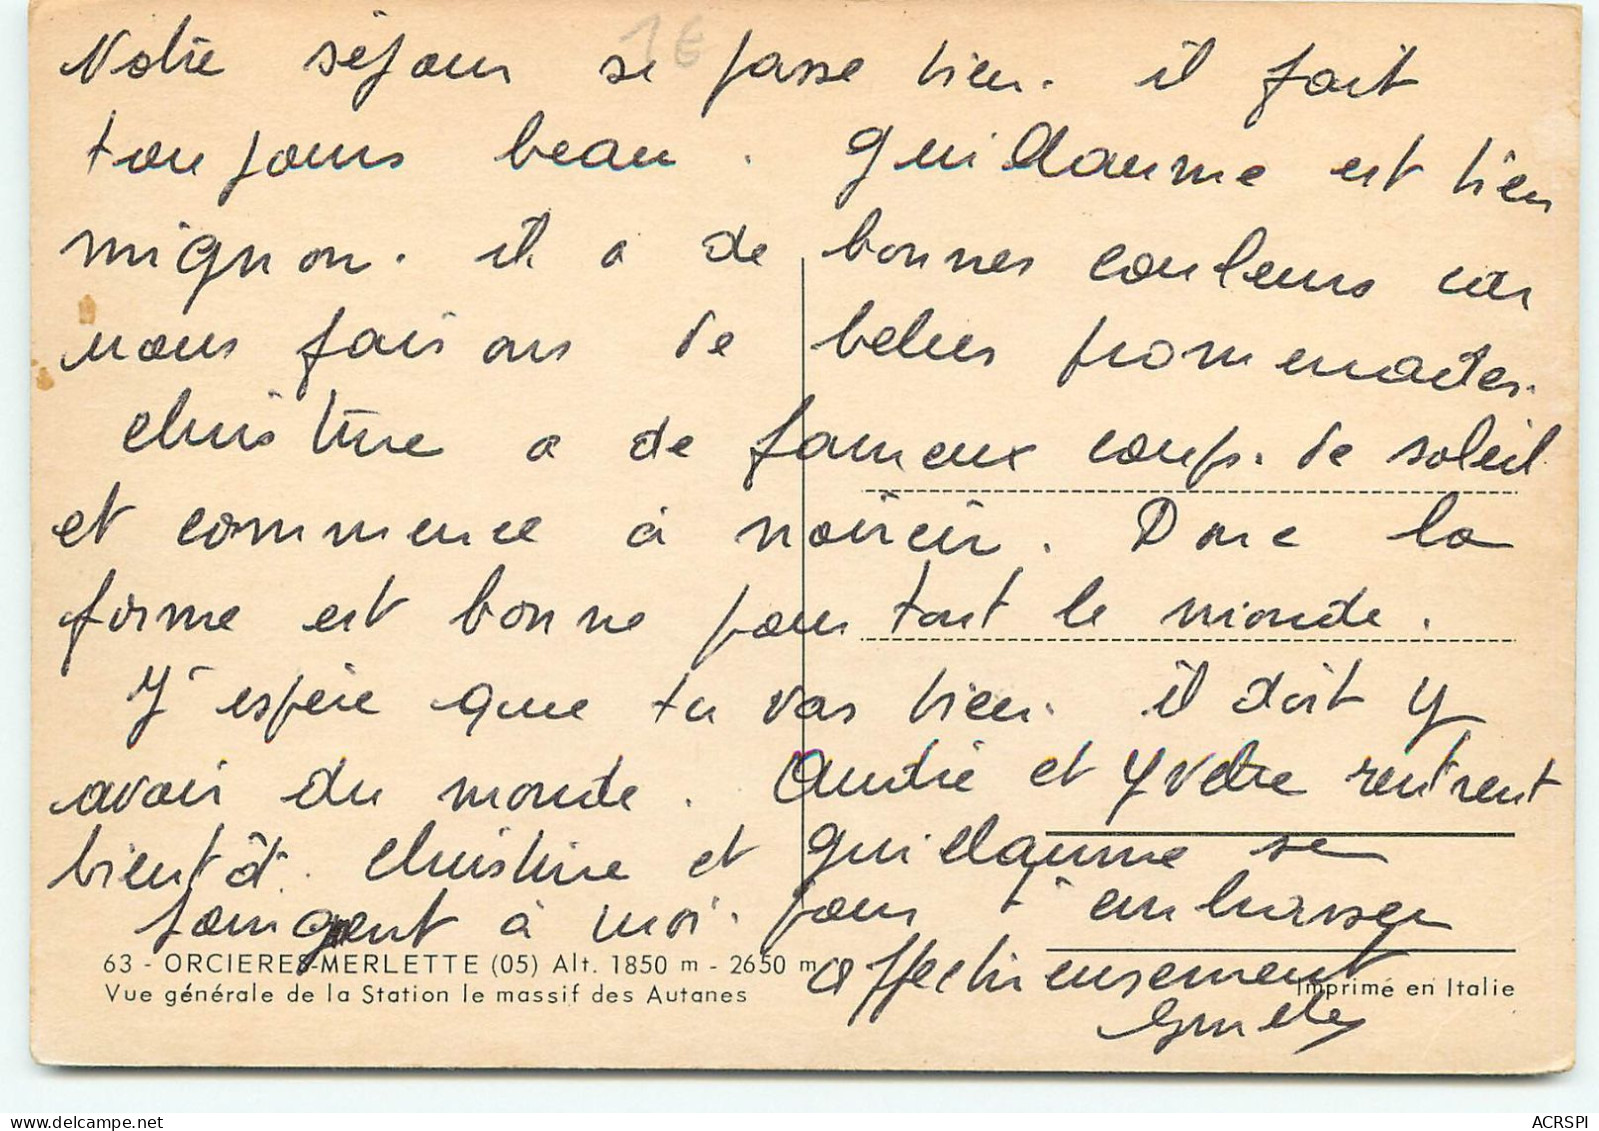 1€
Notre séjour se passe bien. il fait
toujours beau. Guillaume est bien
mignon. il a de bonnes couleurs car
nous faisons de belles promenades.
Christine a de fameux coups de soleil
et commence à noircir. Donc la
forme est bonne pour tout le monde.
J'espère que tu vas bien. il doit y
avoir du monde. André et Yvette rentrent
bientôt. Christine et Guillaume se
joignent à moi pour t'embrasser
affectueusement
63 - ORCIERES-MERLETTE (05) Alt. 1850 m - 2650 m
Vue générale de la Station le massif des Autanes
Imprimé en Italie
ACRSPI